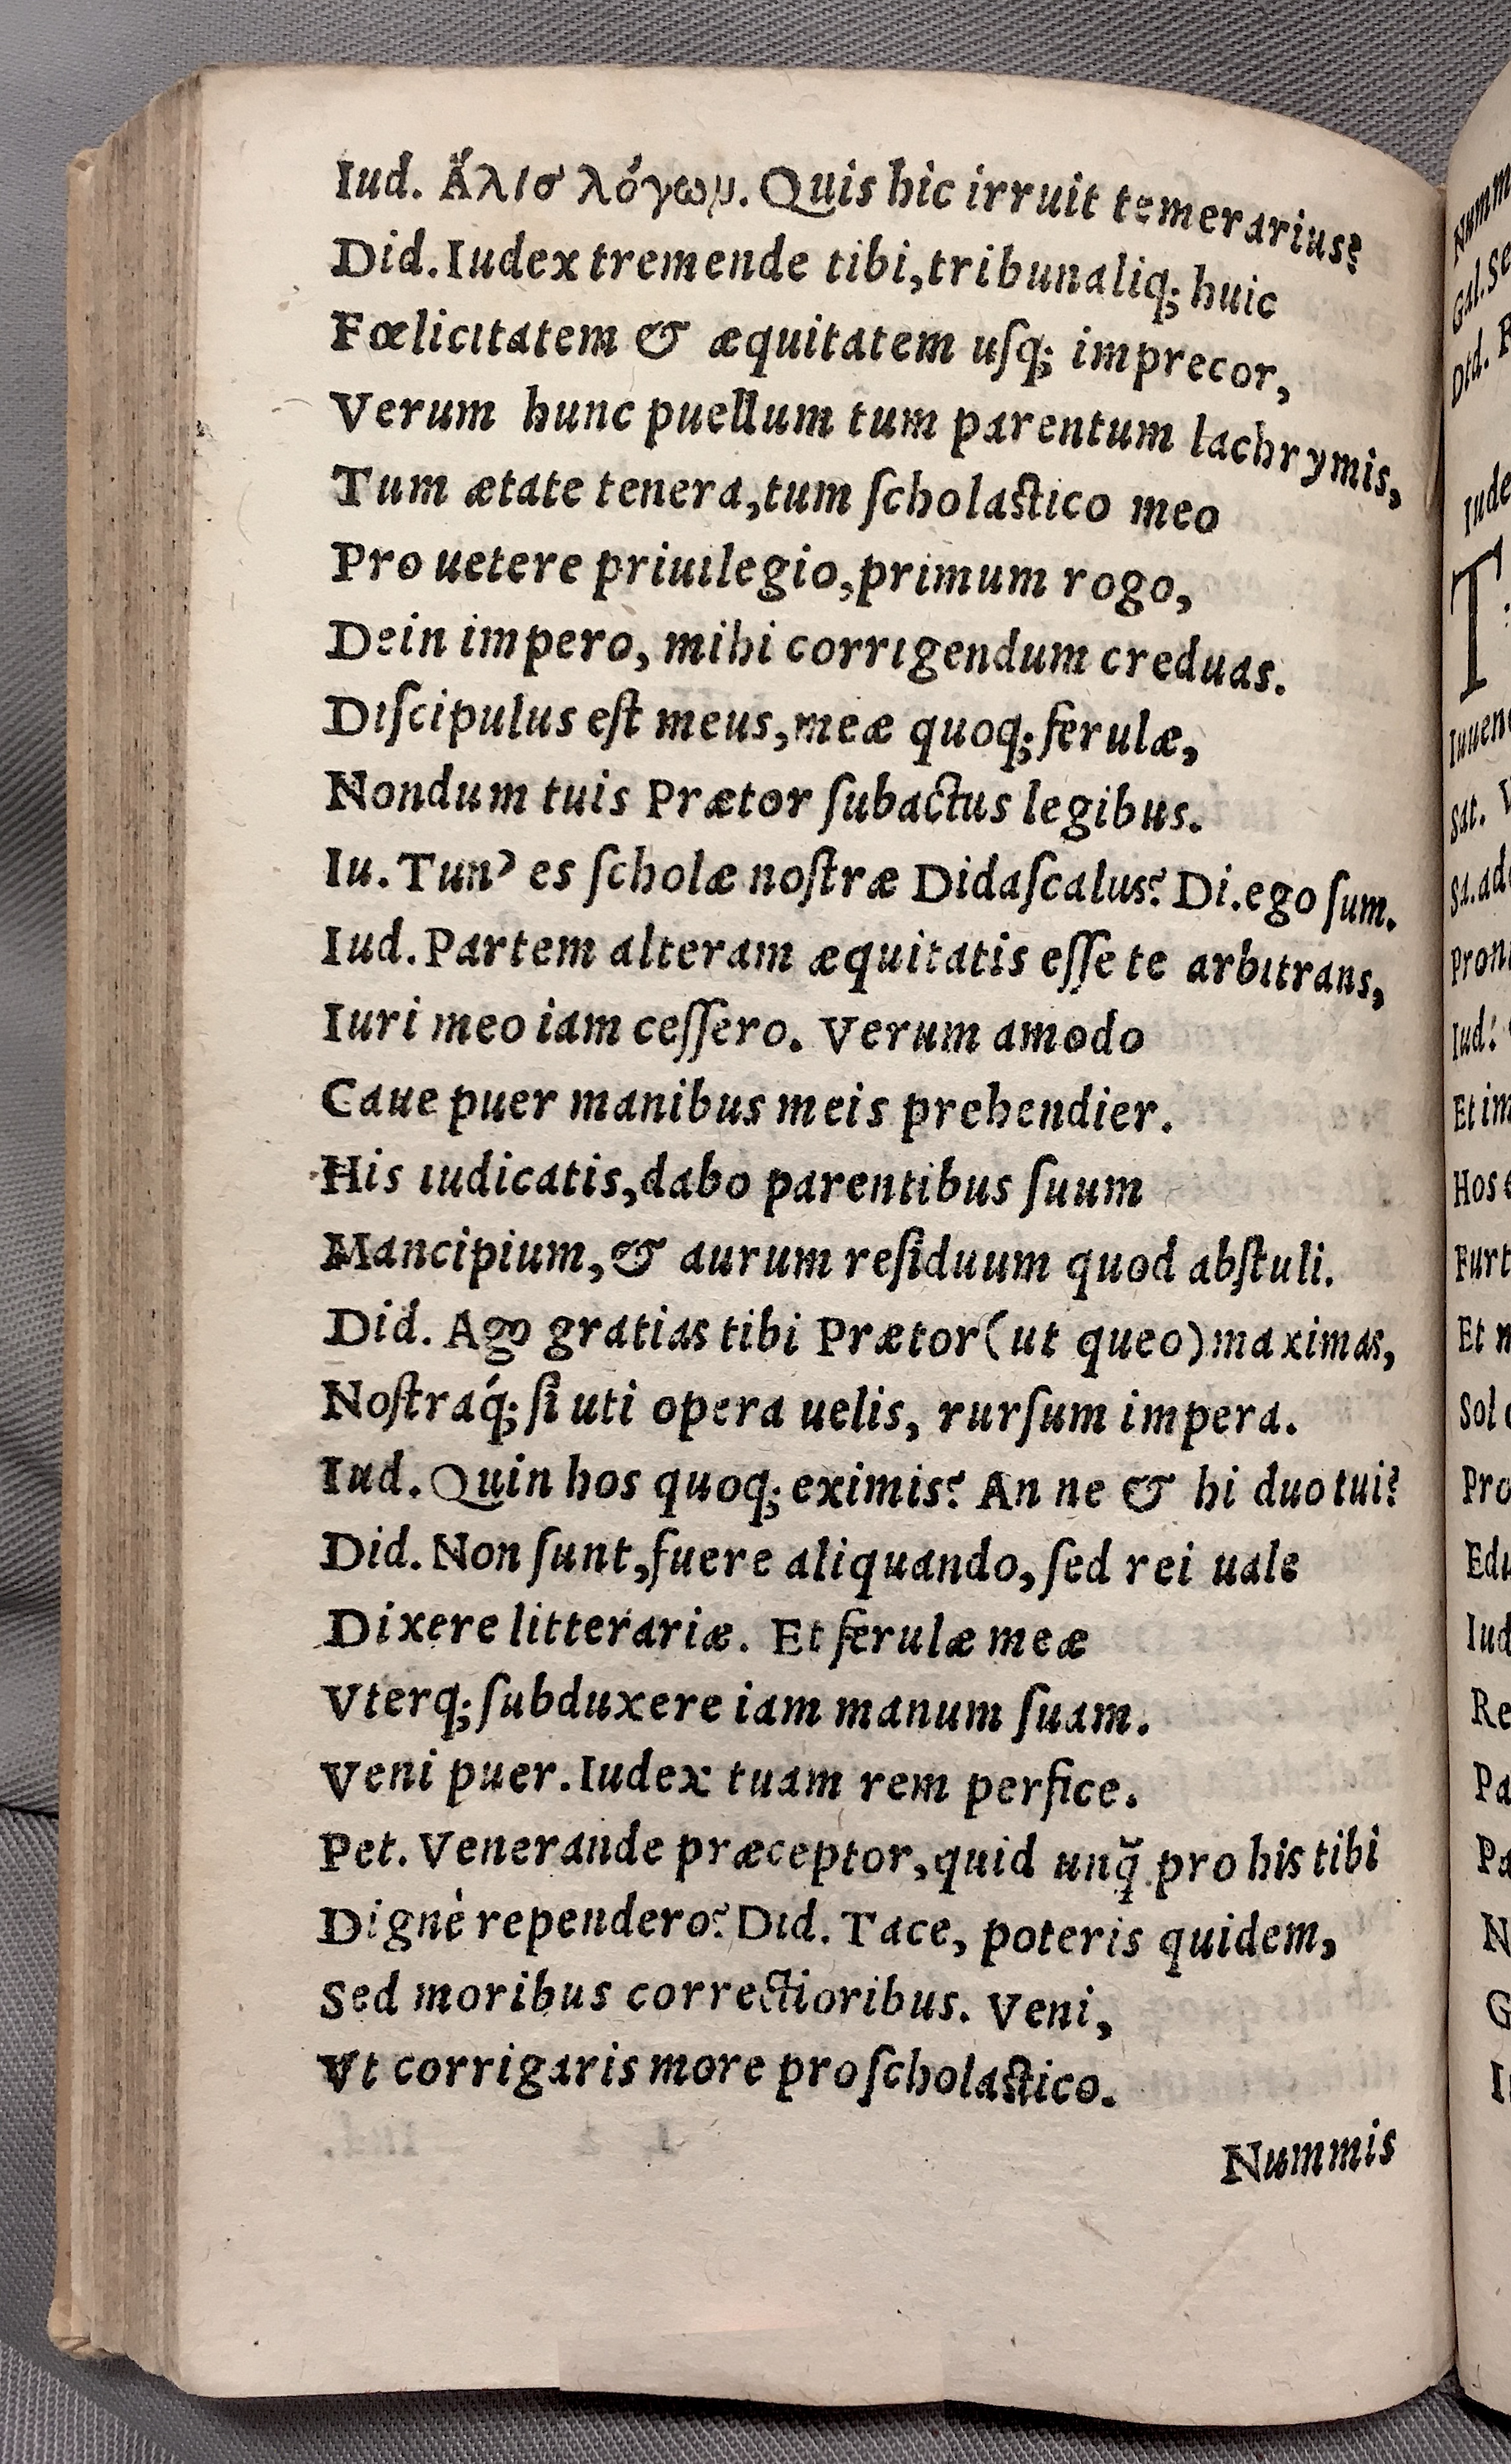 Iud. Ἄλισ λόγων. Quis hic irruit temerarius?
Did. Iudex tremende tibi, tribunaliq; huic
Fœlicitatem & æquitatem uſq; imprecor,
Verum hunc puellum tum parentum lachrymis,
Tum ætate tenera, tum ſcholaſtico meo
Pro uetere priuilegio, primum rogo,
Dein impero, mihi corrigendum creduas.
Diſcipulus eſt meus, meæ quoq; ferulæ,
Nondum tuis Prætor ſubactus legibus.
Iu. Tun' es ſcholæ noſtræ Didaſcalus? Di. ego ſum.
Iud. Partem alteram æquitatis eſſe te arbitrans,
Iuri meo iam ceſſero. Verum amodo
Caue puer manibus meis prehendier.
His iudicatis, dabo parentibus ſuum
Mancipium, & aurum reſiduum quod abſtuli.
Did. Ago gratias tibi Prætor (ut queo) maximas,
Noſtraq́; ſi uti opera uelis, rurſum impera.
Iud. Quin hos quoq; eximis? An ne & hi duo tui?
Did. Non ſunt, fuere aliquando, ſed rei uale
Dixere litterariæ. Et ferulæ meæ
Vterq; ſubduxere iam manum ſuam.
Veni puer. Iudex tuam rem perfice.
Pet. Venerande præceptor, quid unq̃ pro his tibi
Dignè rependero? Did. Tace, poteris quidem,
Sed moribus correctioribus. Veni,
Vt corrigaris more pro ſcholaſtico.
Nummis